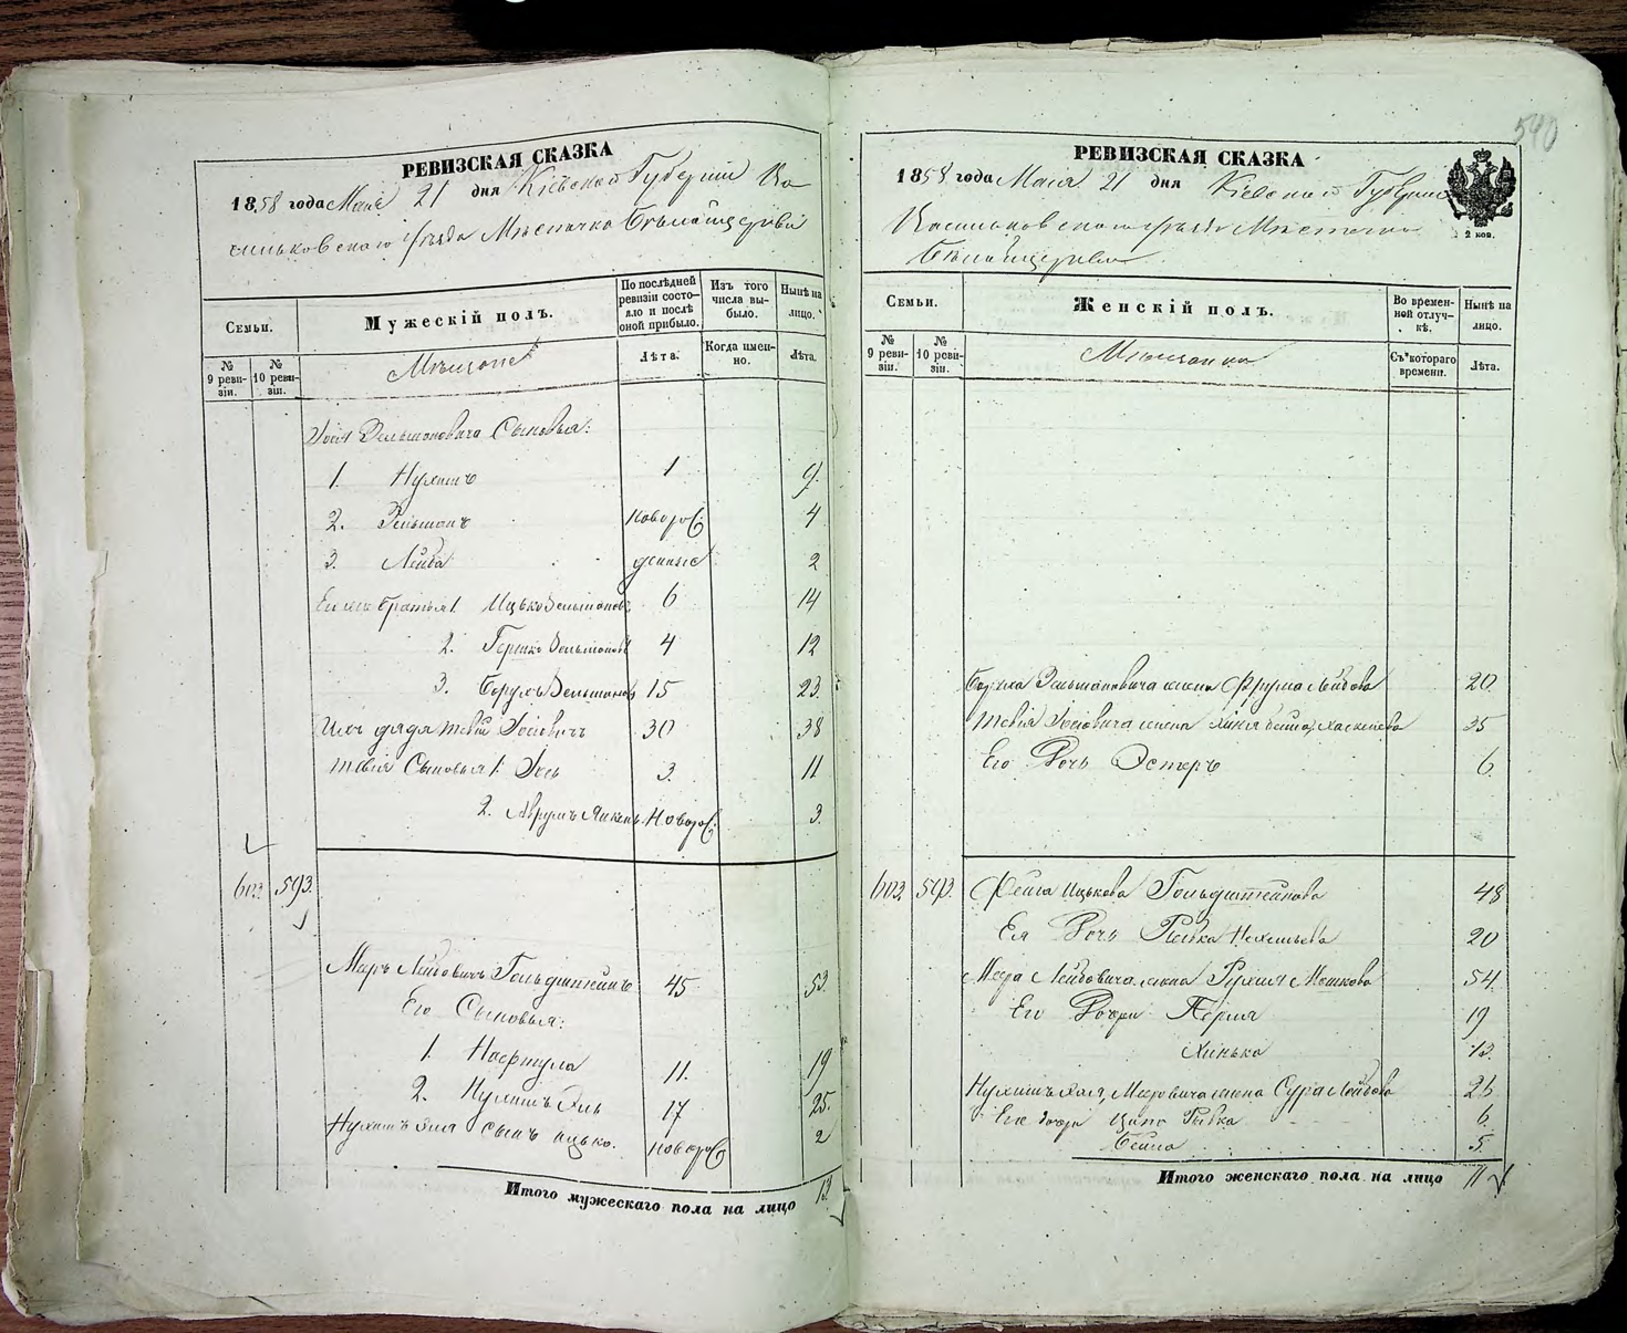 540
РЕВИЗСКАЯ СКАЗКА
1858 года Маия 21 дня Кіевской Губерніи Ва
сильковского уѣзда Мѣстечка Бѣлайцеркви
Семьи.
Мужескій полъ.
По послѣдней ревизіи состо-
яло и послѣ
оной прибыло.
Изъ того
числа вы-
было.
Нынѣ на
лицо.
№
9 реви-
зіи.
№
10 реви-
зіи.
Мѣщане
Лѣта.
Когда имен-
но.
Лѣта.
Зельмановича Сыновья:
1. Нухимъ 1 9
2. Зельманъ новорож 4
3. Лейба денные 2
Его же братья 1. Ицько Зельманов 6 14
2. Гершко Зельманов 4 12
3. Борухъ Зельманов 15 23
Ихъ дядя Тевія Іосіовичъ 30 38
Тевія Сыновья 1. Іось 3 11
2. Аврумъ Янкель Новорож 3
603 593
Меръ Лейбовичъ Гольдштейнъ 45 53
Его Сыновья:
1. Нафтула 11 19
2. Нухимъ Эль 17 25
Нухимъ Эля сынъ Ицько новорож 2
Итого мужескаго пола на лицо 13
РЕВИЗСКАЯ СКАЗКА
1858 года Маия 21 дня Кіевской Губерніи
Васильковского уѣзда Мѣстечка
Бѣлайцеркви
2 коп.
Семьи.
Женскій полъ.
Во времен-
ной отлуч-
кѣ.
Нынѣ на
лицо.
№
9 реви-
зіи.
№
10 реви-
зіи.
Мѣщанки
Съ котораго
времени.
Лѣта.
Боруха Зельмановича жена Фрума Лейбова 20
Тевія Іосіовича жена Бейла Хаскелева 35
Его Дочь Эстеръ 6
603 593 Фейга Ицькова Гольдштейнова 48
Ея Дочь Рывка 20
Мера Лейбовича жена Рухля Мошкова 54
Его Дочери Перля 19
Хинька 13
Нухимъ Эля Меровича жена Сура Лейбова 26
Его дочери Рывка 6
Бейла 5
Итого женскаго пола на лицо 11